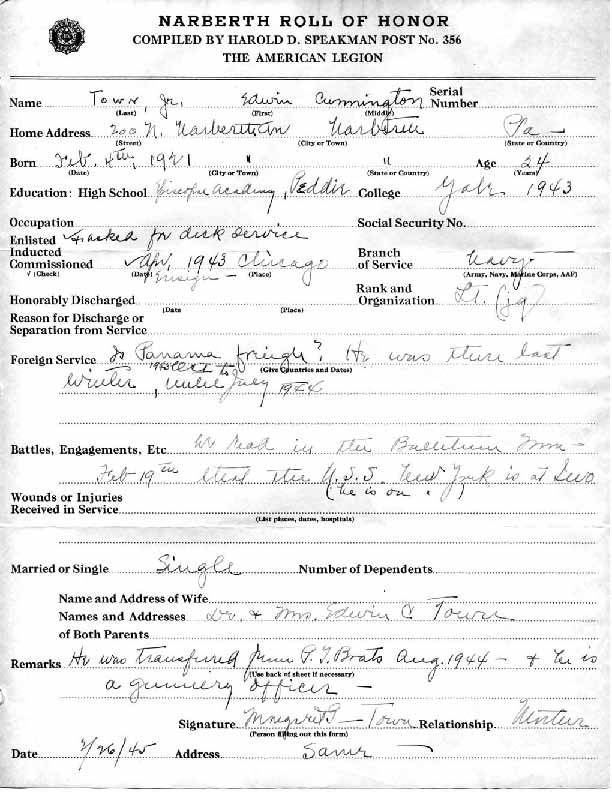 NARBERTH ROLL OF HONOR
COMPILED BY HAROLD D. SPEAKMAN POST No. 356
THE AMERICAN LEGION
Name Town, Jr. Edwin Cunnington Serial Number
(Last) (First) (Middle)
Home Address 200 N. Narberth Av Narberth Pa —
(Street) (City or Town) (State or Country)
Born Feb. 4th, 1921 " " Age 24
(Date) (City or Town) (State or Country) (Years)
Education: High School Episcopal Academy, Peddie College Yale 1943
Occupation Social Security No.
Enlisted asked for deck service
Inducted
Commissioned Apr, 1943 Chicago Branch of Service Navy
√ (Check) (Date) Ensign — (Place) (Army, Navy, Marine Corps, AAF)
Honorably Discharged Rank and Organization Lt. (jg)
(Date (Place)
Reason for Discharge or
Separation from Service
Foreign Service Is Panama foreign? He was there last
1943 Oct to (Give Countries and Dates)
winter, until July 1944
Battles, Engagements, Etc We read in the Bulletin from —
Feb 19th that the U.S.S. New York is at Iwo
(he is on.)
Wounds or Injuries
Received in Service
(List places, dates, hospitals)
Married or Single Single Number of Dependents
Name and Address of Wife
Names and Addresses Dr. & Mrs. Edwin C Town
of Both Parents
Remarks He was transferred from P.T. Boats Aug. 1944 — & he is
(Use back of sheet if necessary)
a gunnery officer —
Signature Margaret — Town Relationship Mother
(Person filling out this form)
Date 2/26/45 Address Same